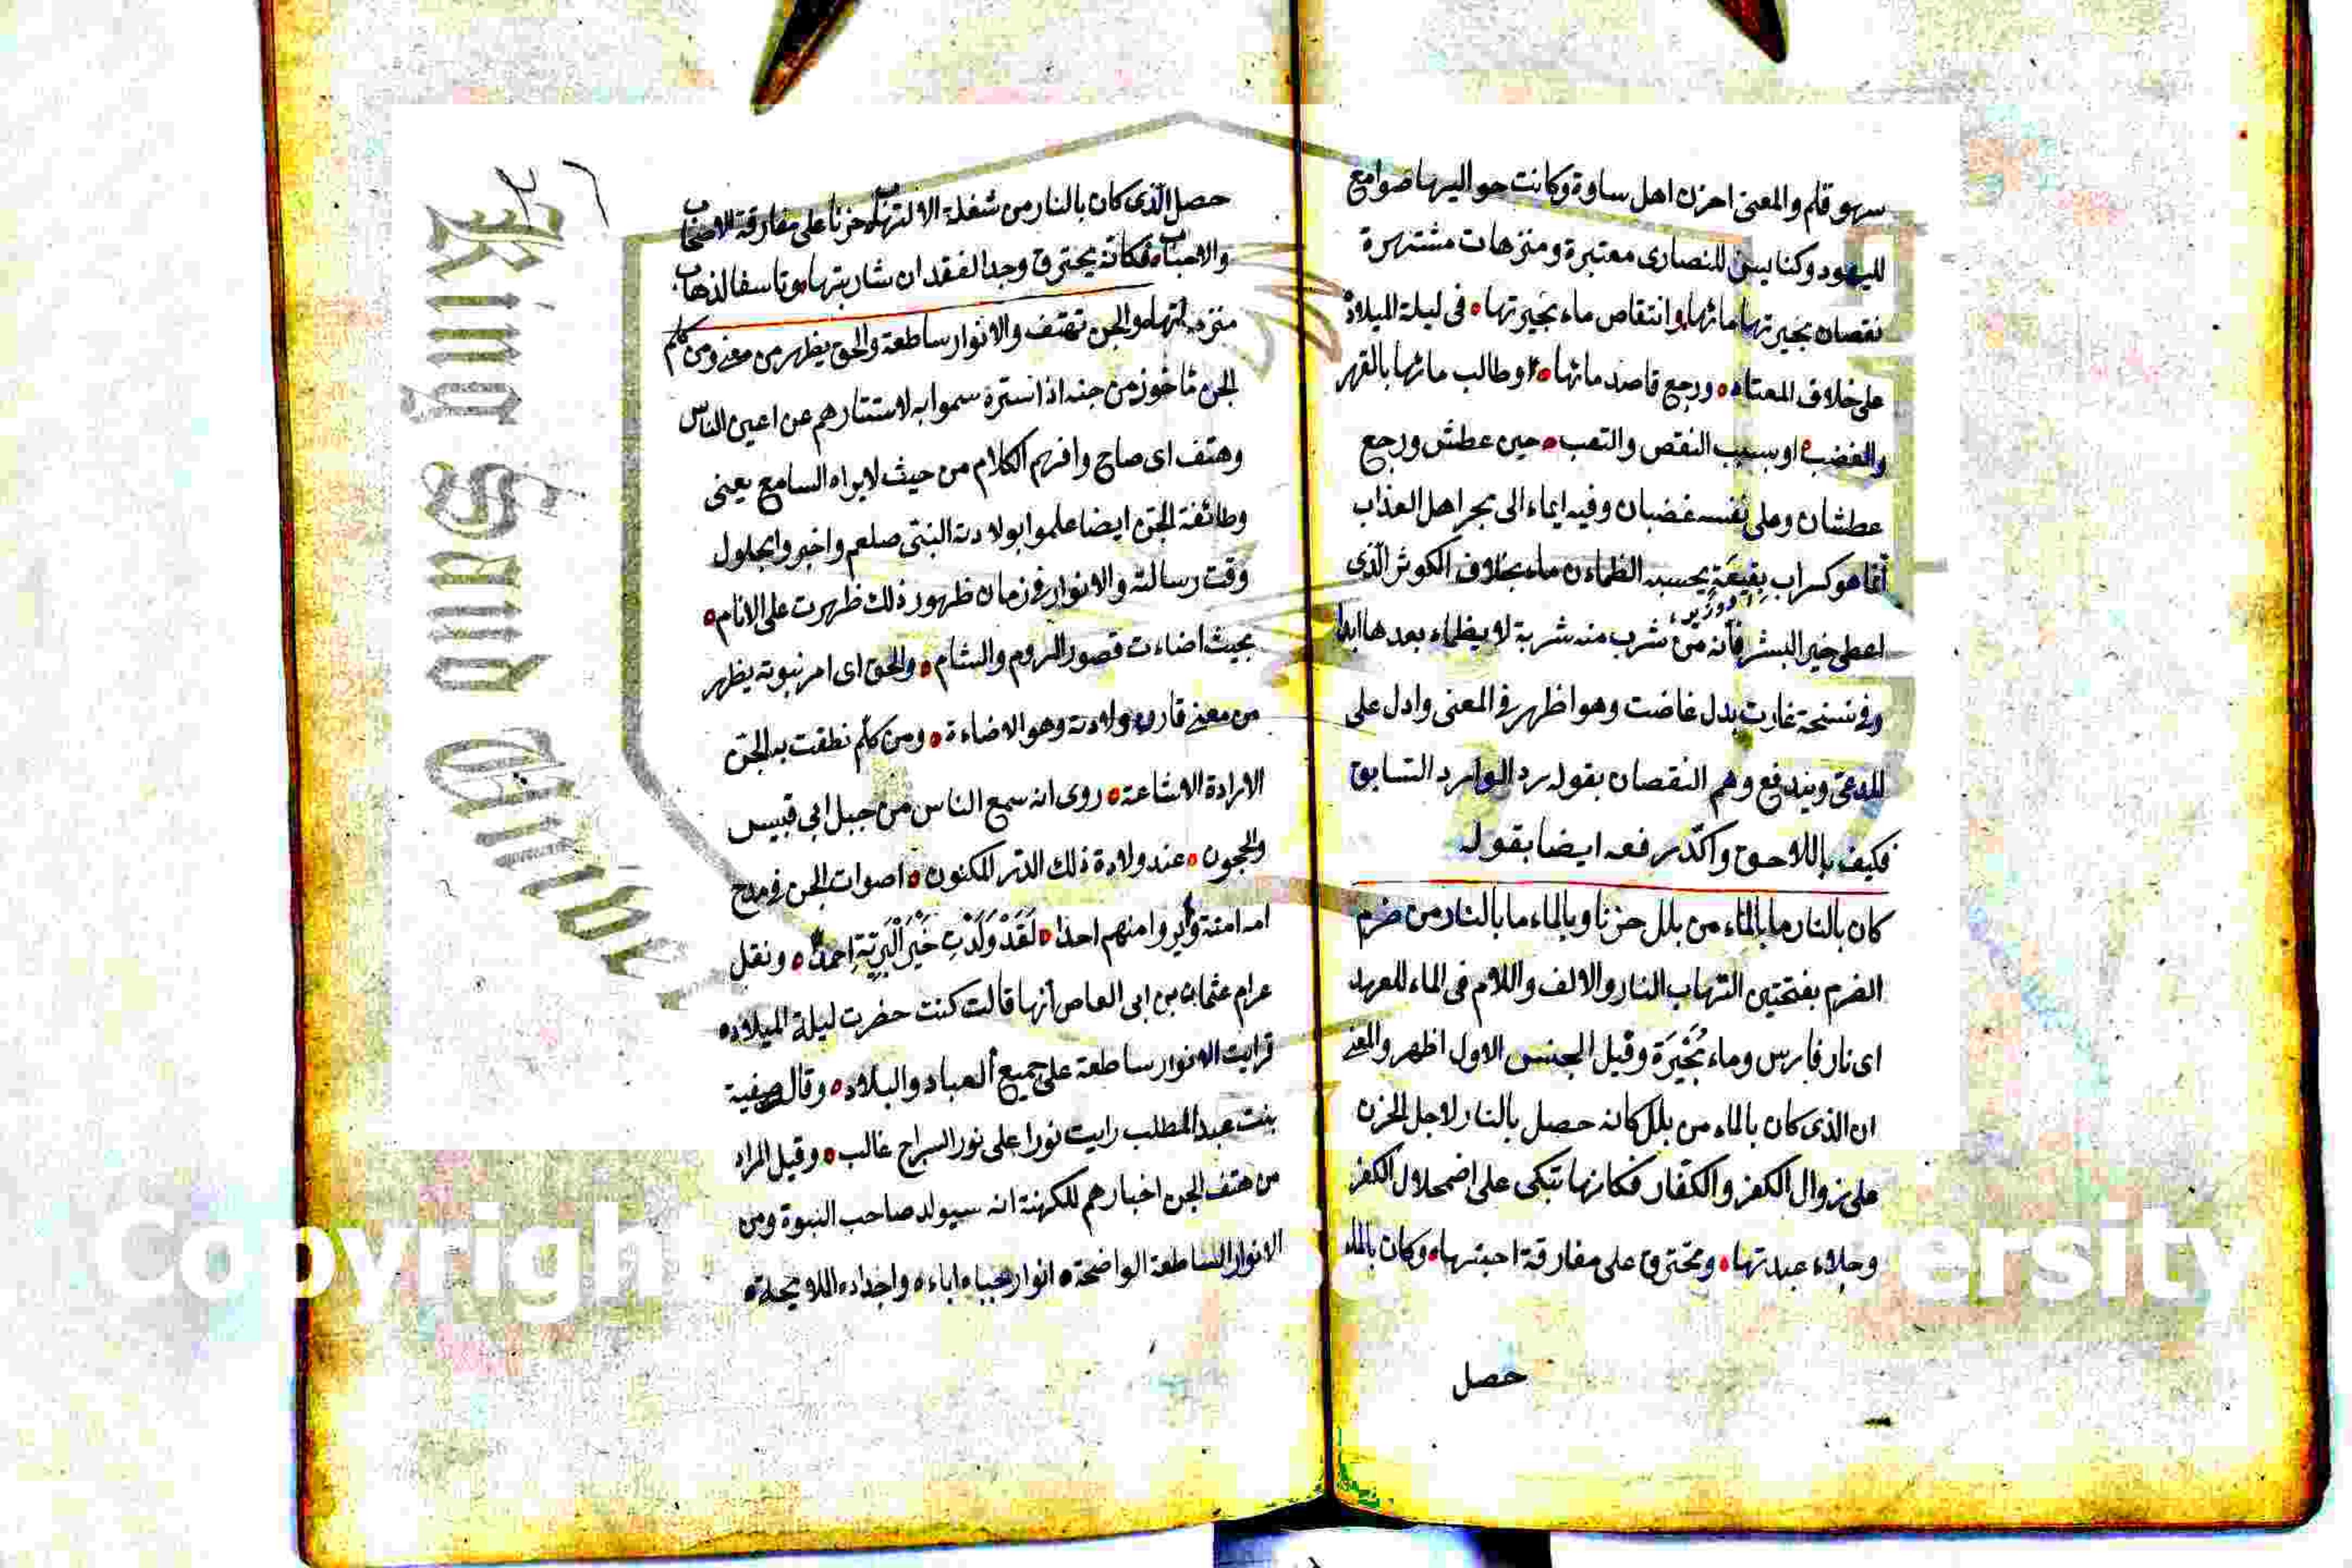 سهو قلم والمعنى احزن اهل ساوة وكانت حواليها صوامع
لليهود وكنايس للنصارى معتبرة ومنزهات مشتهرة
نقصان بحيرتها مائها وانتقاص ماء بحيرتها في ليلة الميلاد
على خلاف المعتاد ورجع قاصد مائها او طالب مائها بالقهر
والغضب او بسبب النقص والتعب حين عطش ورجع
عطشان وعلى نفسه غضبان وفيه ايماء الى بحر اهل العذاب
انما هو كسراب بقيعة يحسبه الظماءن ماء بخلاف الكوثر الذى
اعطى خير البشر فانه من شرب منه شربة لا يظماء بعدها ابدا
وفي نسخة غارت بدل غاضت وهو اظهر في المعنى وادل على
المدعى ويندفع وهم النقصان بقوله رد الوارد السابق
فكيف باللاحق واكد رفعه ايضا بقوله
كان بالنار ما بالماء من بلل حزنا وبالماء ما بالنار من ضرم
الضرم بفتحتين التهاب النار والالف واللام فى الماء للعهد
اى نار فارس وماء بحيرة وقيل الجنس الاول اظهر والمعنى
ان الذى كان بالماء من بلل كانه حصل بالنار لاجل الحزن
على زوال الكفر والكفار فكانها تبكى على اضمحلال الكفر
وجلاء عبدتها وتحترق على مفارقة احبتها وكان بالماء
حصل
حصل الذى كان بالنار من شعلة الالتهاب حزنا على مفارقة الاصحاب
والاحباب فكانه يحترق وجد الفقدان شاربتها وتاسفا لذهاب
والجن تهتف والانوار ساطعة والحق يظهر من معنى ومن كلم
الجن ماخوذ من جنه اذا ستره سموا به لاستتارهم عن اعين الناس
وهتف اى صاح وافهم الكلام من حيث لا يراه السامع يعنى
وطائفة الجن ايضا علموا بولادة النبى صلعم واخبروا بحلول
وقت رسالته والانوار في زمان ظهور ذلك ظهرت على الانام
بحيث اضاءت قصور الروم والشام والحق اى امر نبوته يظهر
من معنى قارن ولادته وهو الاضاءة ومن كلم نطقت به الجن
الارادة الاشاعة روى انه سمع الناس من جبل ابي قبيس
والحجون عند ولادة ذلك الدر المكنون اصوات الجن في مدح
امه امنة ولم يروا منهم احدا لقد ولدت خير البرية احمدا ونقل
عن ام عثمان بن ابى العاص انها قالت كنت حضرت ليلة الميلاد
فرايت الانوار ساطعة على جميع العباد والبلاد وقال صفية
بنت عبد المطلب رايت نورا على نور السراج غالب وقيل المراد
من هتف الجن اخبارهم للكهنة انه سيولد صاحب النبوة ومن
الانوار الساطعة الواضحة انوار جباه اباءه واجداده اللايحة
King Saud Univer
Copyrigh ersity